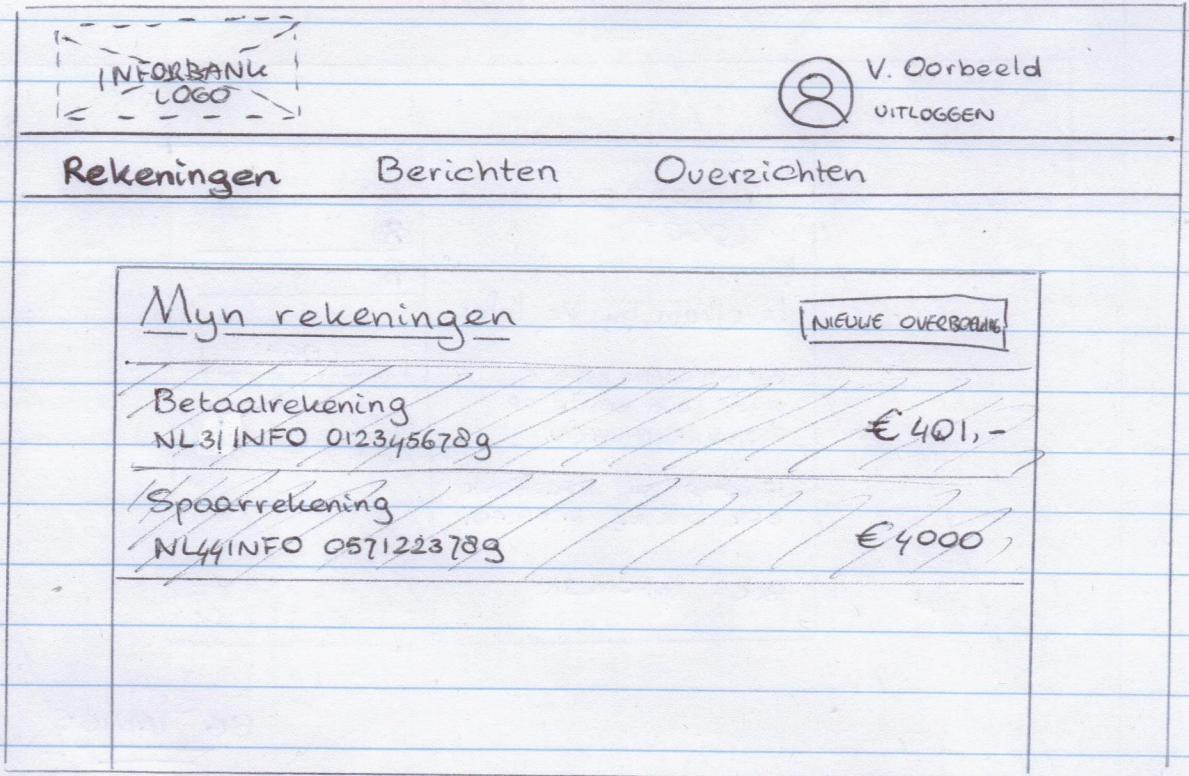 INFORBANK
LOGO
V. Oorbeeld
UITLOGGEN
Rekeningen Berichten Overzichten
Myn rekeningen
NIEUWE OVERBOEKING
Betaalrekening
NL31INFO 0123456789
€ 401,-
Spaarrekening
NL44INFO 0571223789
€ 4000,